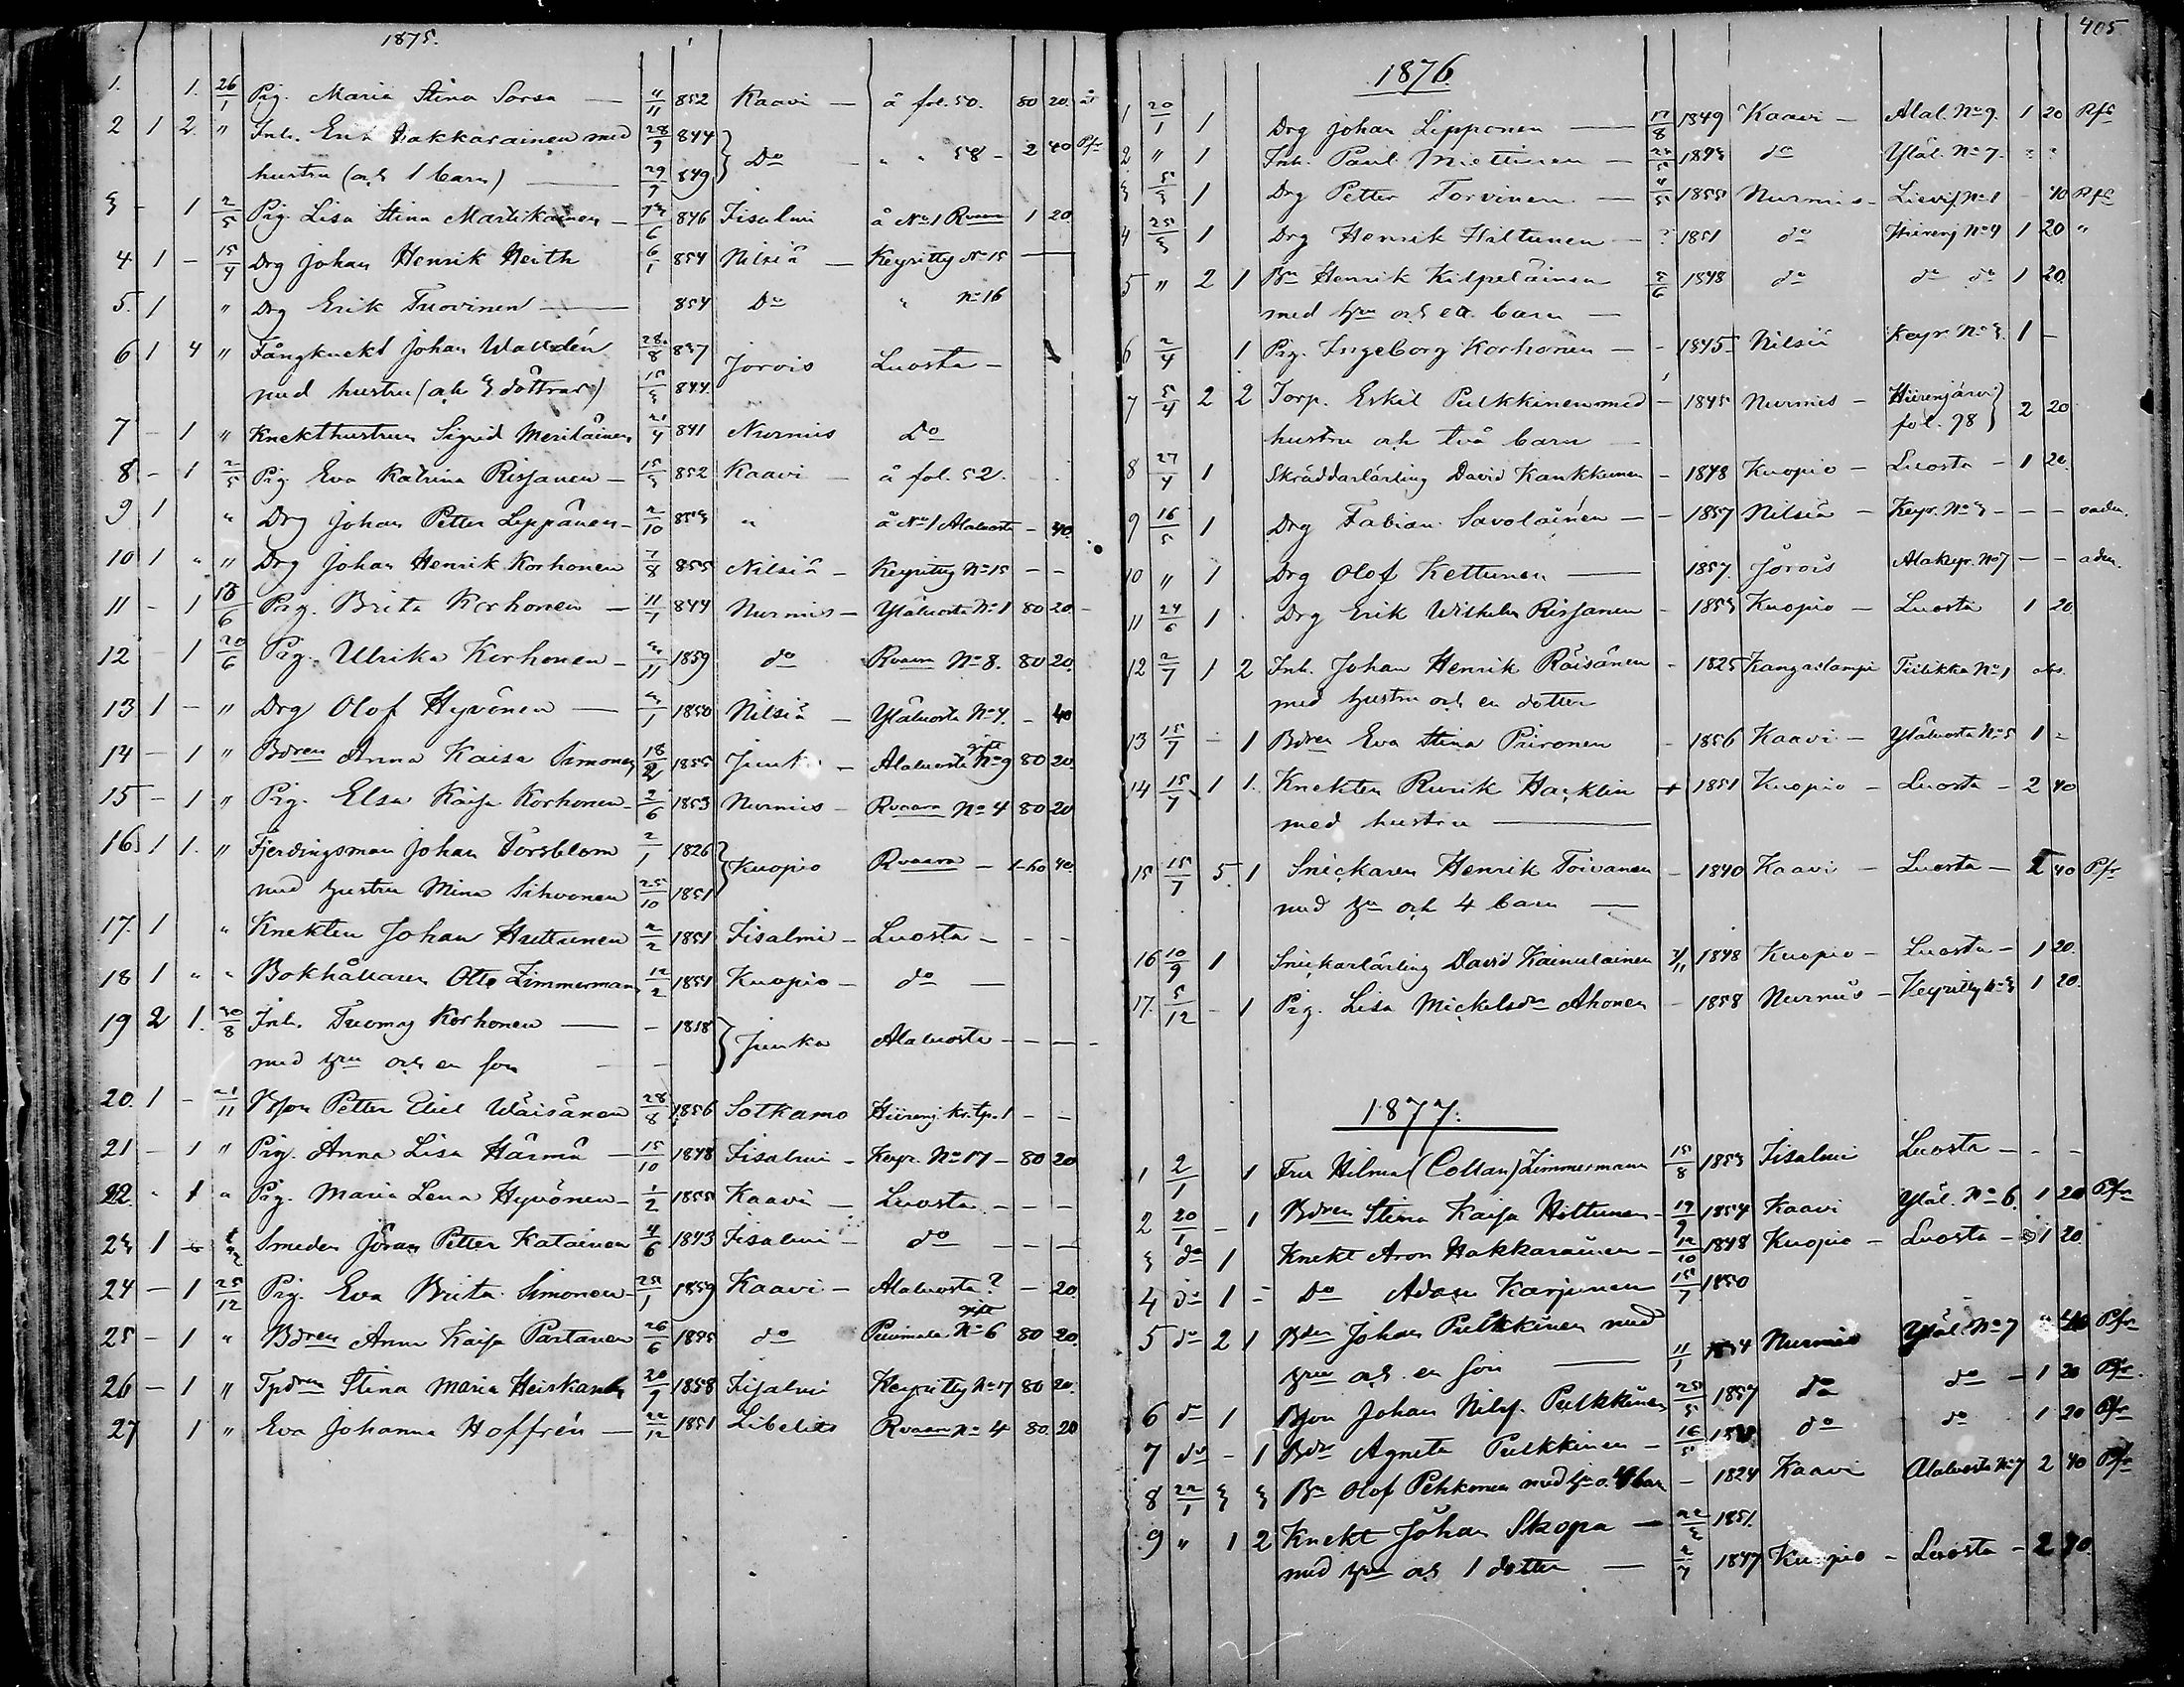 1875.
1. 1. 26/1 Pig. Maria Stina Sorsa — 4/11 852 Kaavi — å fol. 50. 80 20
2 1 2. " Inh. Erik Hakkarainen med 28/9 844 Do — " " 58 - 2 40 Pfr
hustru (och 1 barn) — 29/7 849
3 - 1 2/5 Pig. Lisa Stina Martikainen — 846 Iisalmi å No 1 Rvaara 1 20.
4 1 - 15/4 Drg Johan Henrik Heith 6/1 854 Nilsiä — Keyritty No 15 —
5. 1 " Drg Erik Tuovinen — 854 Do " No 16
6 1 4 " Fångknekt Johan Walldén 28/8 837 Jorois Luosta —
med hustru (och 3 döttrar) 15/3 844.
7 - 1 " Knekthustrun Sigrid Meriläinen 21/4 841 Nurmis Do
8 - 1 2/5 Pig. Eva Katrina Rissanen — 15/3 852 Kaavi — å fol. 52.
9 1 " Drg Johan Petter Leppänen — 2/10 853 " å No 1 Alaluosta - 40.
10 1 " " Drg Johan Henrik Korhonen 7/8 855 Nilsiä — Keyritty No 15 - -
11 - 1 18/6 Pig. Brita Korhonen — 11/1 844 Nurmis — Yläluosta No 1 80 20 -
12 - 1 20/6 Pig. Ulrika Korhonen — 3/11 1859 do Rvaara No 8. 80 20.
13 1 - " Drg Olof Hyvönen — 3/1 1850 Nilsiä — Yläluosta No 4. - 40
14 - 1 " Bdren Anna Kaisa Simonen 18/2 1855 Juuka — Alaluosta No 9 80 20.
15 - 1 " Pig. Elsa Kaisa Korhonen — 2/6 1853 Nurmis — Rvaara No 4 80 20
16 1 1. " Fjerdingsman Johan Forsblom 2/1 1826 Kuopio Rvaara — 1-60 40.
med hustru Mina Sihvonen 25/10 1851
17. 1 " Knekten Johan Huttunen 2/2 1851 Iisalmi — Luosta — - -
18 1 " " Bokhållaren Otto Zimmerman 12/2 1851 Kuopio — do —
19 2 1. 30/8 Inh. Tuomas Korhonen — - 1818 Juuka Alaluosta — - - -
med hru och en son — -
20. 1 - 21/11 Bson Petter Eliel Wäisänen 28/8 1856 Sotkamo Hiirenj. kr. tp. 1 - -
21 - 1 " Pig. Anna Lisa Härmä — 15/10 1848 Iisalmi — Keyr. No 17 — 80 20
22. " 1 " Pig. Maria Lena Hyvönen — 1/2 1855 Kaavi — Luosta — - -
23 1 - Smeden Jöran Petter Katainen 4/6 1843 Iisalmi — do — - -
24 - 1 25/12 Pig. Eva Brita Simonen — 25/1 1859 Kaavi — Alaluosta? - 20.
25 - 1 " Bdren Anna Kaisa Partanen 26/6 1855 do Puumala No 6 80 20.
26 - 1 " Tpdren Stina Maria Heiskanen 20/9 1858 Iisalmi Keyritty No 17 80 20.
27 1 " Eva Johanna Hoffrén — 22/12 1851 Libelits Rvaara No 4 80. 20
405
1876.
1 20/1 1 Drg Johan Lipponen — 17/8 1849 Kaavi — Alal. No 9. 1 20 Pfr
2 " 1 Inh. Paul Miettinen — do Yläl. No 7. " "
3 5/3 1 Drg Petter Torvinen — 4/5 1855 Nurmis — No 1 - 40 Pfr
4 25/3 1 Drg Henrik Hiltunen — ? 1851 do Hiirenj No 4 1 20 "
5 " 2 1 Bn Henrik Kilpeläinen 5/6 1848 do do do 1 20.
med hru och ett barn —
6 2/4 1 Pig. Ingeborg Korhonen — - 1845 Nilsiä Keyr. No 3. 1 -
7 5/4 2 2 Torp. Eskil Pulkkinen med - 1845 Nurmis — Hiirenjärvi 2 20
hustru och två barn — fol. 98
8 27/4 1 Skräddarlärling David Kaukkunen - 1848 Kuopio — Luosta — 1 20.
9 16/5 1 Drg Fabian Savolainen — - 1857 Nilsiä — Keyr. No 3 - - -
10 " 1 Drg Olof Kettunen — 1857. Jorois Alakeyr. No 7 — -
11 24/6 1 Drg Erik Wilhelm Rissanen - 1853 Kuopio — Luosta 1 20
12 2/7 1 2 Inh. Johan Henrik Räisänen - 1825 Kangaslampi Tiilikka No 1
med hustru och en dotter
13 15/7 - 1 Bdren Eva Stina Piironen - 1856 Kaavi — Yläluosta No 5 1 -
14 15/7 1 1. Knekten Rurik Hacklin + 1851 Kuopio — Luosta — 2 40
med hustru —
15 15/7 5. 1 Snickaren Henrik Toivanen - 1840 Kaavi — Luosta — 2 40 Pfr
med hru och 4 barn —
16 10/9 1 Snickarlärling David Kainulainen 7/11 1848 Kuopio — Luosta — 1 20.
17. 5/12 - 1 Pig. Lisa Mickelsdr Ahonen - 1858 Nurmis — Keyritty No 3 1 20.
1877.
1 2/1 1 Fru Hilma (Collan) Zimmermann 15/8 1853 Iisalmi Luosta — - -
2 20/1 - 1 Bdren Stina Kaisa Hiltunen — 19/9 1854 Kaavi Yläl. No 6. 1 20 Pfr
3 do 1 Knekt Aron Hakkarainen — 12/10 1848 Kuopio — Luosta — 1 20
4 do 1 - Do Adam Karjunen 15/7 1850
5 do 2 1 Bdn Johan Pulkkinen med
hru och en son — 11/1 Nurmis Yläl. No 7 Pfr
6 do 1 Bson Johan Nils. Pulkkinen 25/5 1857 do do — 1 20 Pfr
7 do - 1 Bdr Agneta Pulkkinen — 16/5 do do 1 20 Pfr
8 22/1 3 3 Bn Olof Pehkonen med hru o. 4 barn - 1824 Kaavi Alaluosta No 7 2 40 Pfr
9 " 1 2 Knekt Johan Skopa — 22/3 1851.
med hru och 1 dotter — 2/7 1847 Kuopio — Luosta — 2 40.